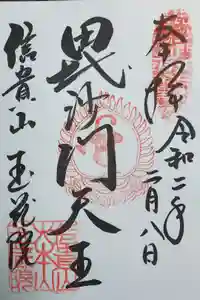 奉拝
令和二年二月八日
毘沙門天王
信貴山
玉蔵院